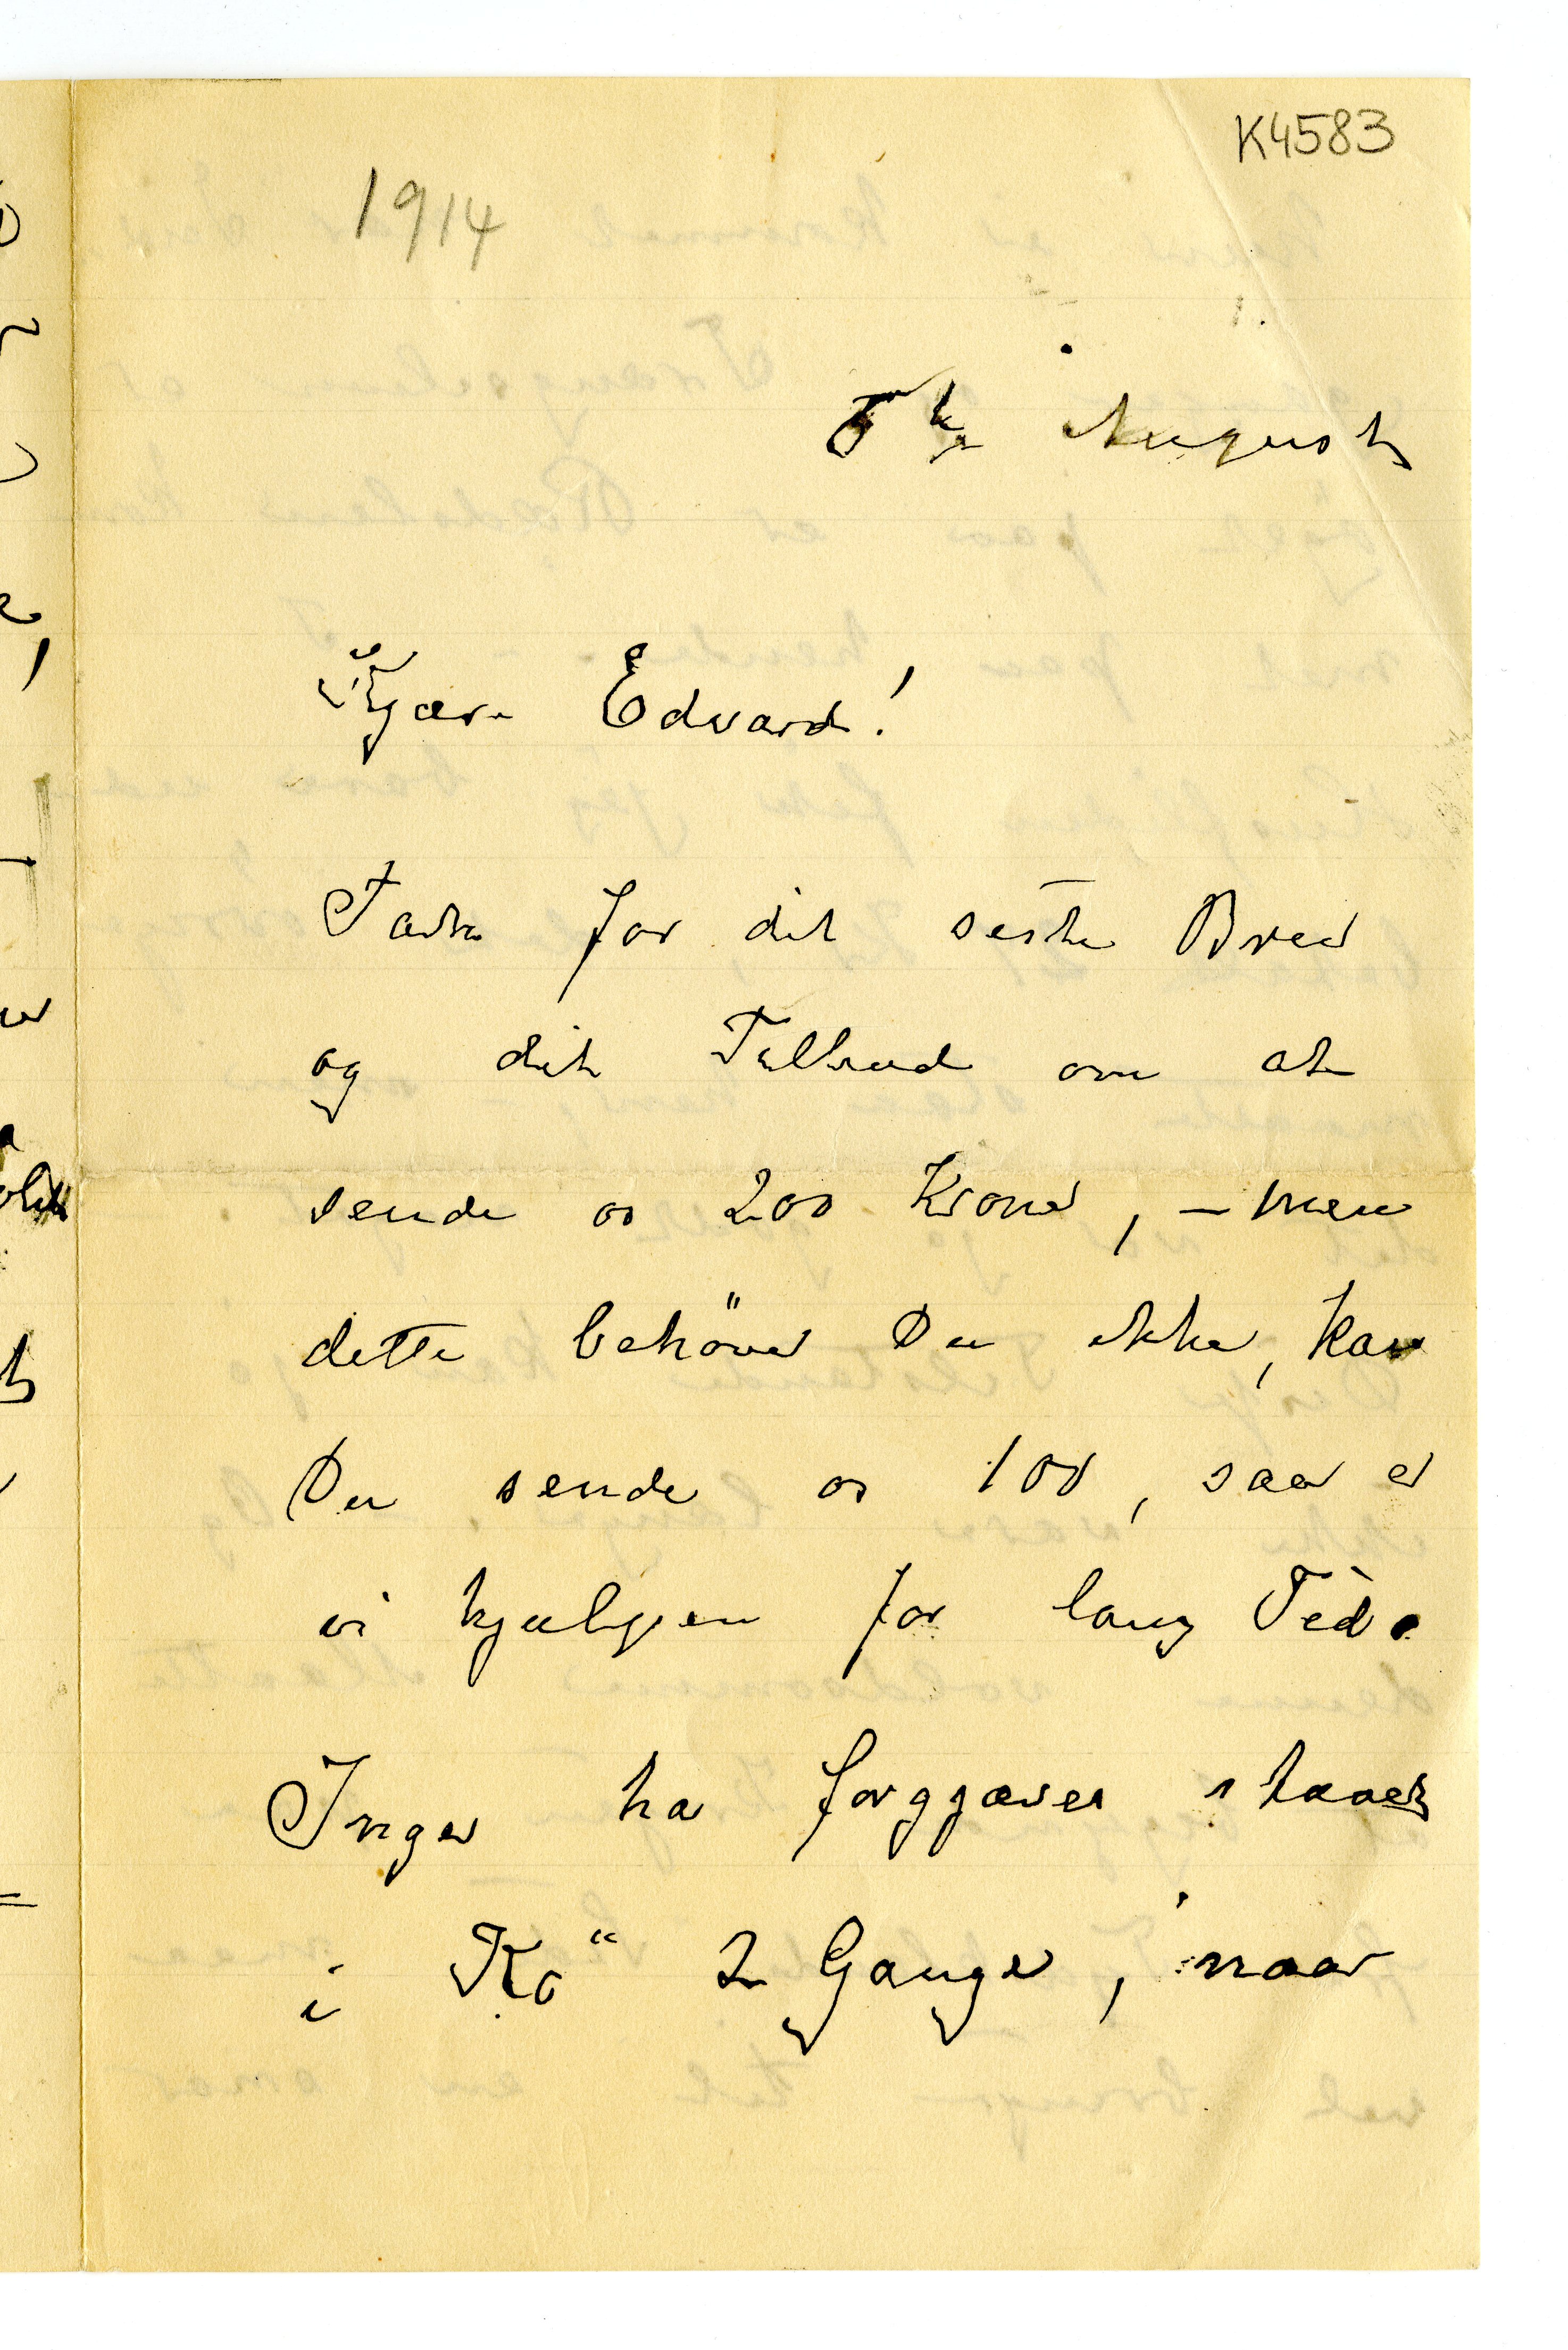 K4583
1914
5te August
Kjære Edvard!
Tak for dit siste Brev
og dit Tilbud om at
sende os 200 Kroner, – men
dette behöver Du ikke, kan
Du sende os 100, saa er
vi hjulpen for lang Tid.
Inger ha forgjæves staaet
i Kö" 2 Ganger, naar